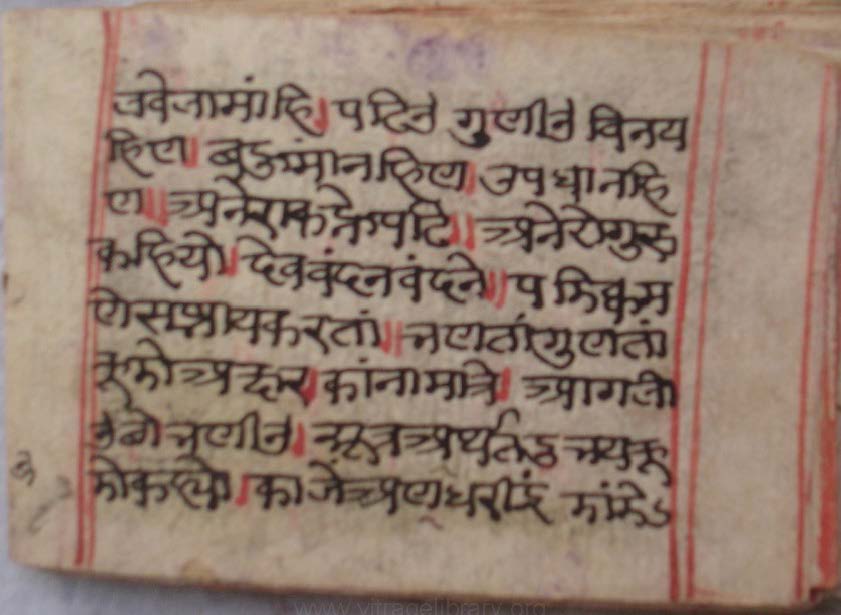 जवेजामांहि। पढिउ गुणीउ विनय
हिण। बहुमानहिण। उपधानहि
ण॥ अनेराकन्हेपढि॥ अनेरोगुरु
कहियो। देववंदनवंदने॥ पडिक्कम
णेसझायकरतां॥ भणतांगुणतां
कूडोअक्षर। कांनामात्रे। आगलो
उछो भणीउ। सूत्रअर्थतदुभयकू
डोकह्यो। काजेअणधरीइं डांडे
www.vitragelibrary.org